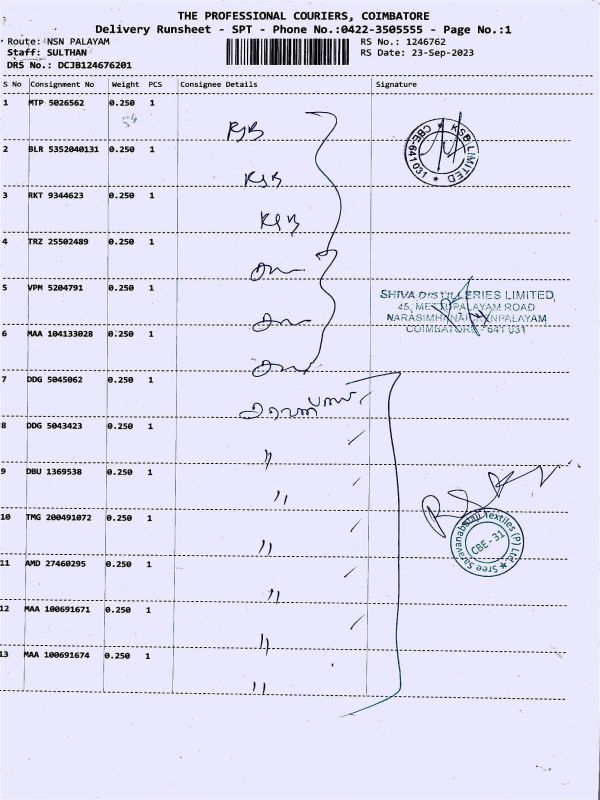 THE PROFESSIONAL COURIERS, COIMBATORE
Delivery Runsheet - SPT - Phone No.:0422-3505555 - Page No.:1
Route: NSN PALAYAM
RS No.: 1246762
Staff: SULTHAN
RS Date: 23-Sep-2023
DRS No.: DCJB124676201
S No Consignment No Weight PCS Consignee Details Signature
1 MTP 5026562 0.250 1
KSB
KSB LIMITED ★ CBE-641 031 ★
2 BLR 5352040131 0.250 1
KSB
3 RKT 9344623 0.250 1
KSB
4 TRZ 25502489 0.250 1
5 VPM 5204791 0.250 1
SHIVA DISTILLERIES LIMITED,
45, METTUPALAYAM ROAD
COIMBATORE - 641 031
6 MAA 104133028 0.250 1
7 DDG 5045062 0.250 1
8 DDG 5043423 0.250 1
"
9 DBU 1369538 0.250 1
"
10 TMG 200491072 0.250 1
"
Textiles (P) Ltd ★ Sree
CBE - 31
11 AMD 27460295 0.250 1
"
12 MAA 100691671 0.250 1
"
13 MAA 100691674 0.250 1
"